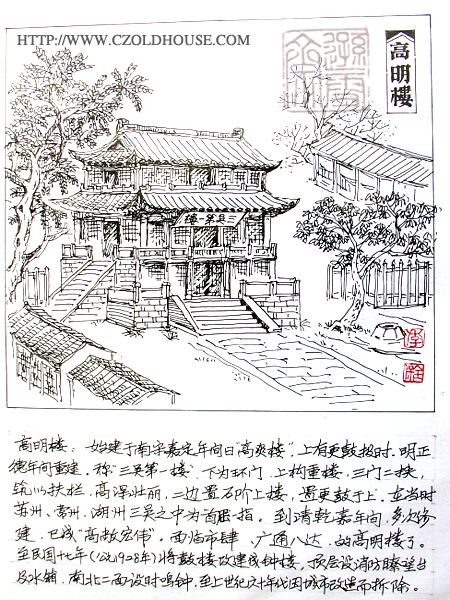 HTTP://WWW.CZOLDHOUSE.COM
高明樓
三吴第一楼
高明楼：始建于南宋嘉定年间曰"高爽楼"，上有更鼓报时.明正
德年间重建，称"三吴第一楼".下为环门，上构重楼，三门二挟，
筑以扶栏，高深壮丽，二边置石阶上楼，置更鼓于上，在当时
苏州、常州、湖州三吴之中为首屈一指。到清乾嘉年间，多次修
建，已成"高敞宏伟"，西临市肆，广通八达，故高明楼了。
至民国十七年(公元1928年)将鼓楼改建成钟楼，顶层设消防瞭望台
及水箱，南北二面设时鸣钟，至上世纪六十年代因城市改造而拆除。